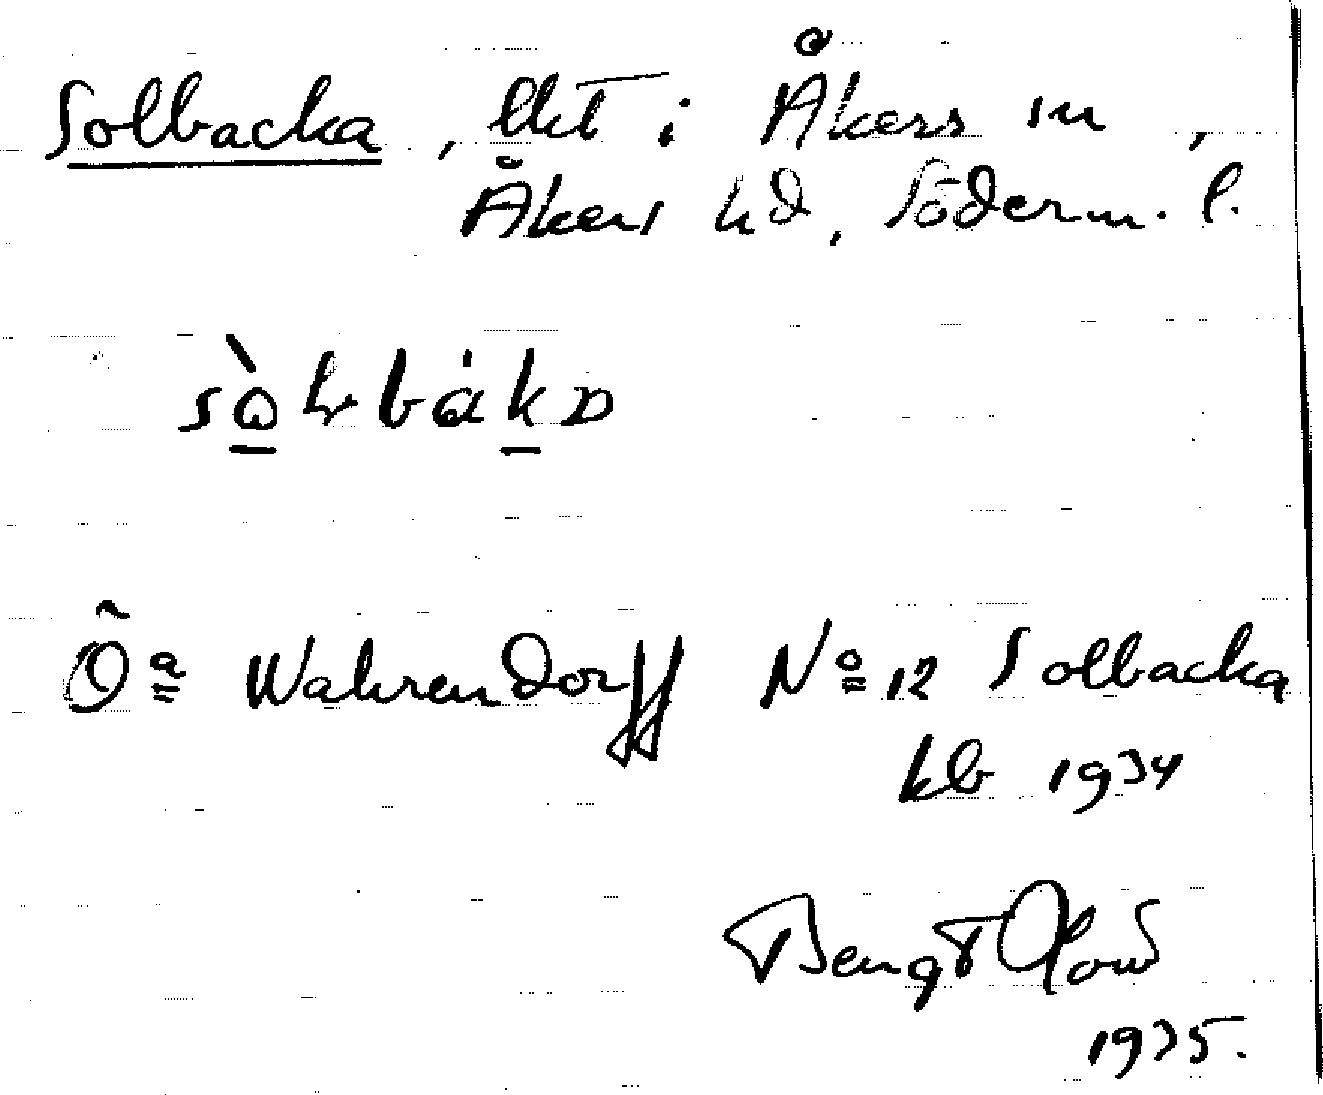 Solbacka, lht i Åkers sn,
Åkers hd, Söderm. l.
Öa Wahrendorff No 12 Solbacka
kb 1934
Bengt
1935.